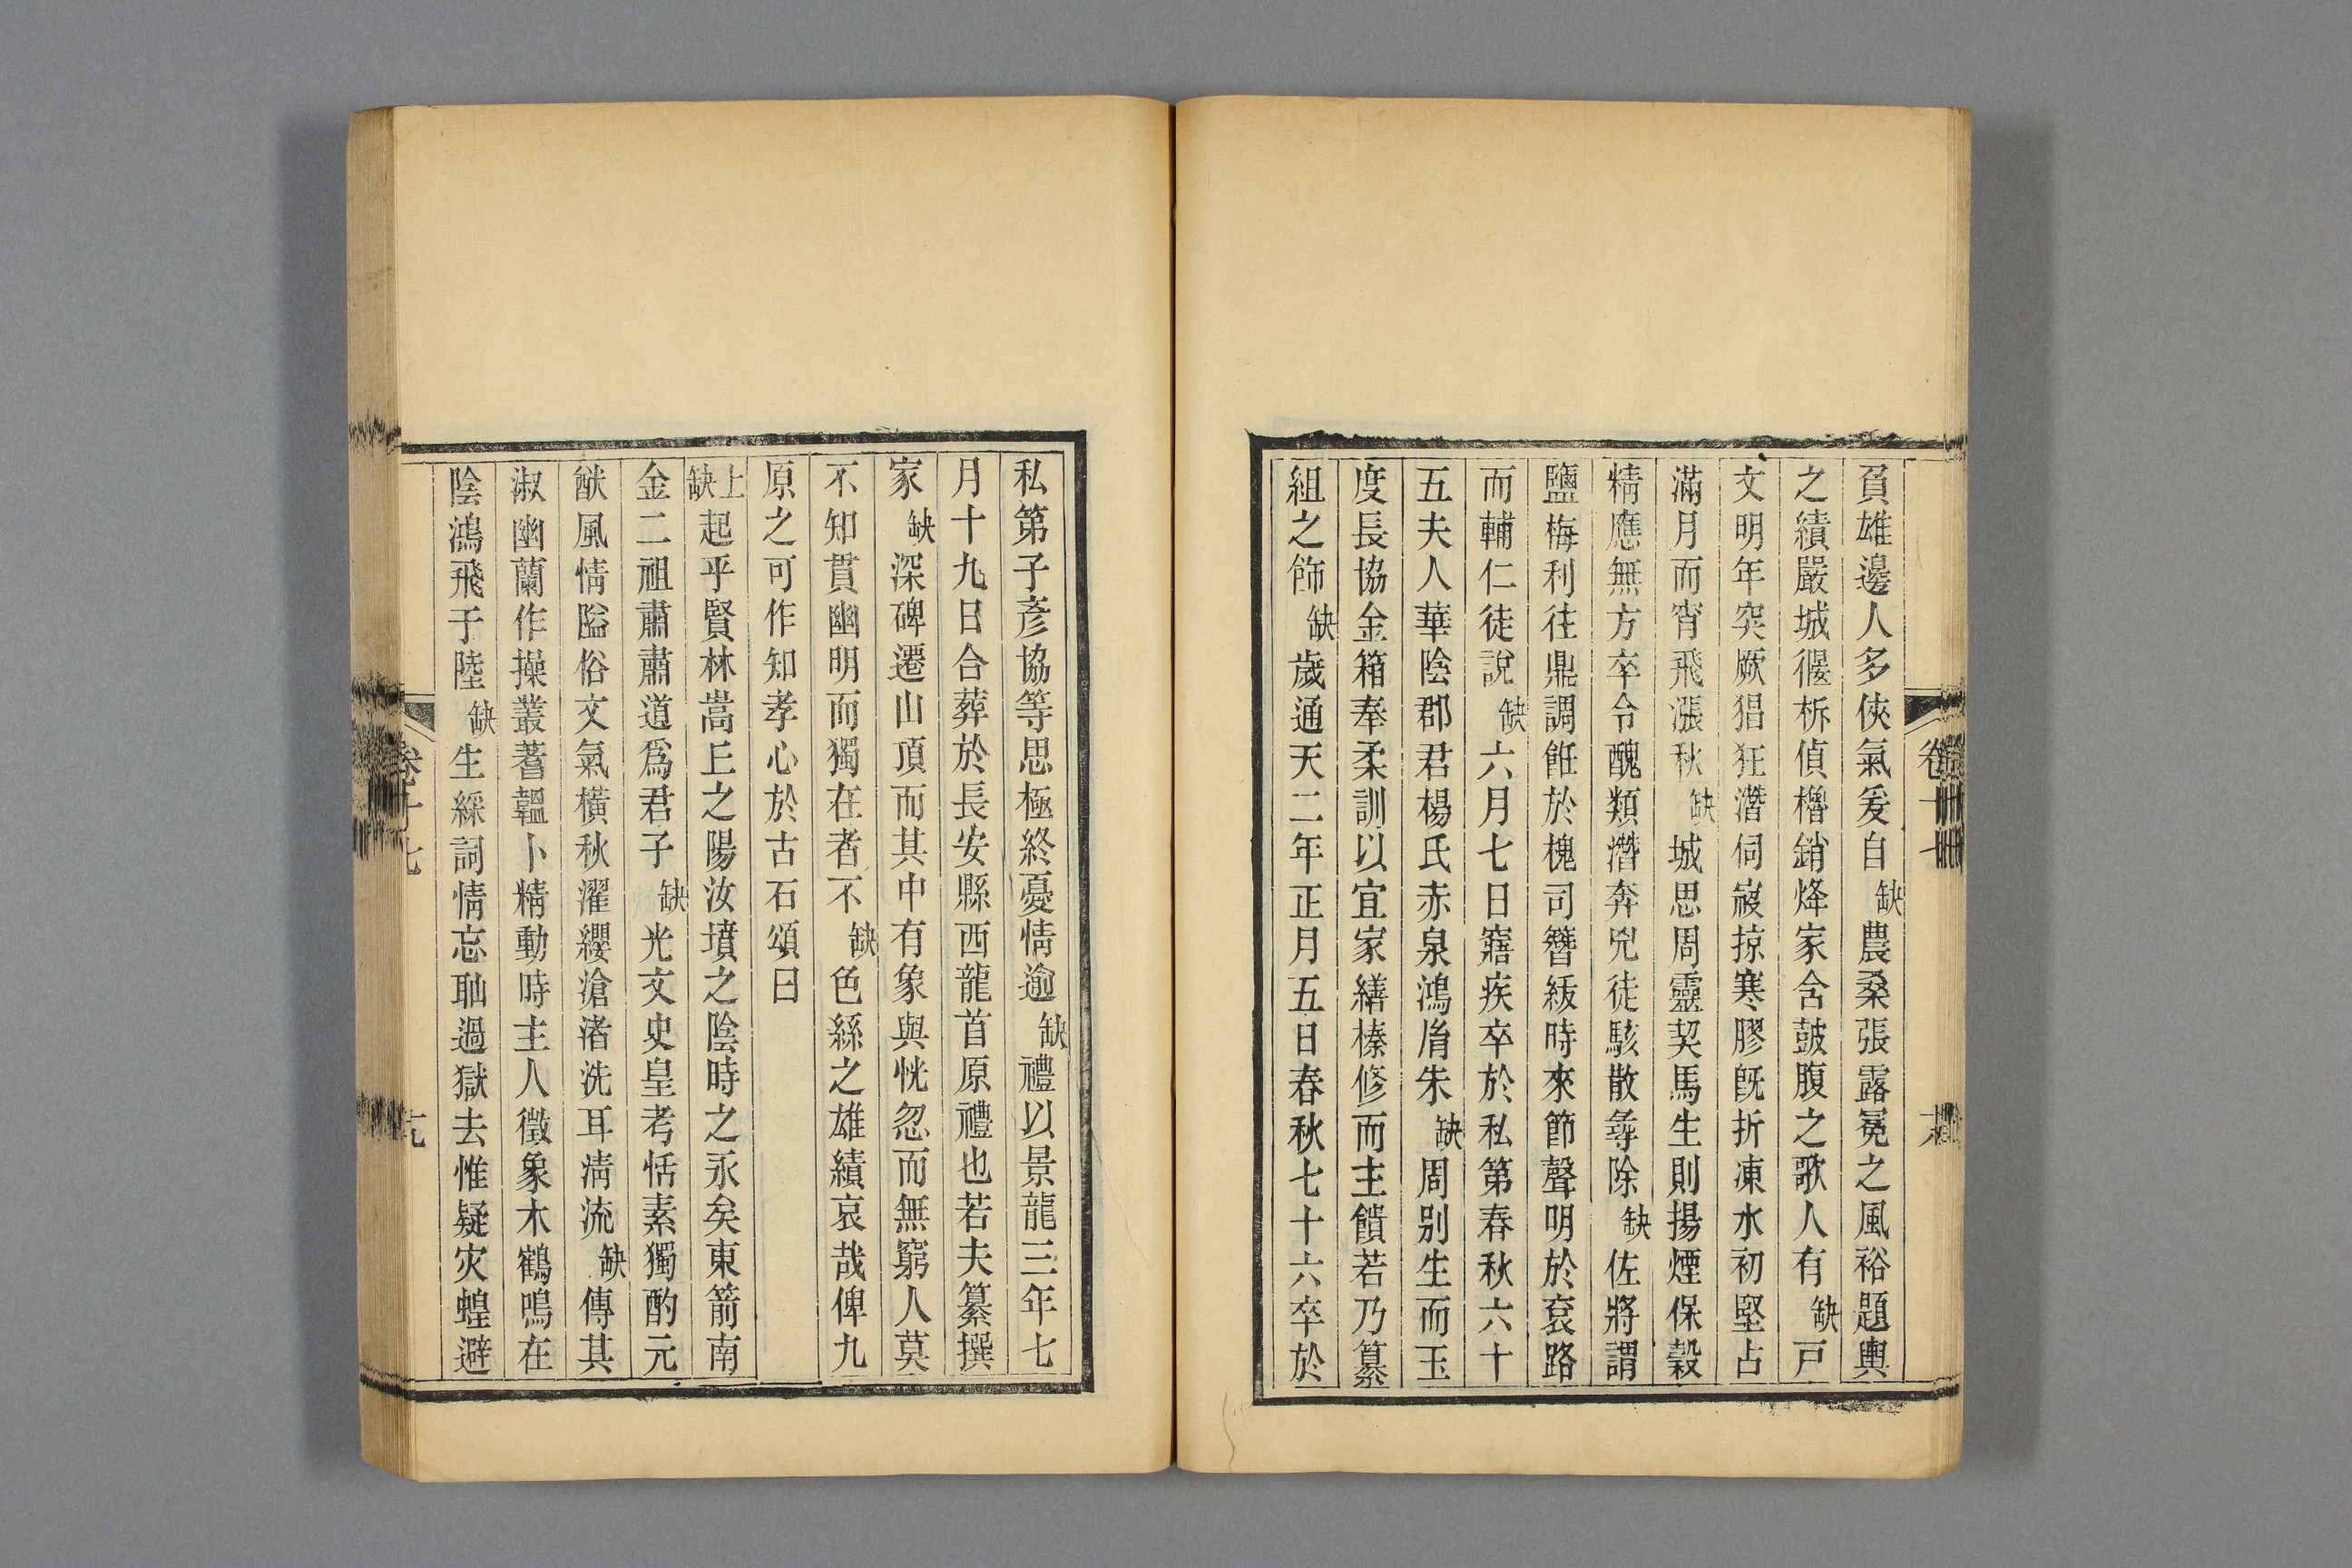 負雄邊人多俠氣爰自缺農桑張露冕之風裕題輿
之績嚴城偃柝偵櫓銷烽家含鼓腹之歌人有缺戸
文明年突厥猖狂潛伺寇掠寒膠既折凍水初堅占
滿月而宵飛漲秋缺城思周靈契馬生則揚煙保穀
精應無方卒令醜類潛奔兇徒駭散彝除缺佐將謂
鹽梅利往鼎調飪於槐司簪紱時來節聲明於袞路
而輔仁徒說缺六月七日寢疾卒於私第春秋六十
五夫人華陰郡君楊氏赤泉鴻胤朱缺周別生而玉
度長協金箱奉柔訓以宜家繕榛修而主饋若乃纂
組之飾缺歲通天二年正月五日春秋七十六卒於
私第子彥協等思極終憂情逾缺禮以景龍三年七
月十九日合葬於長安縣西龍首原禮也若夫纂撰
家缺深碑遷山頂而其中有象與恍忽而無窮人莫
不知貫幽明而獨在者不缺色絲之雄績哀哉俾九
原之可作知孝心於古石頌曰
上缺起乎賢林嵩丘之陽汝墳之陰時之永矣東箭南
金二祖肅肅道爲君子缺光文史皇考恬素獨酌元
猷風情隘俗文氣橫秋濯纓滄渚洗耳淸流缺傳其
淑幽蘭作操叢蓍韞卜精動時主人徵象木鶴鳴在
陰鴻飛于陸缺生綵詞情忘耻過獄去惟疑灾蝗避
卷十七